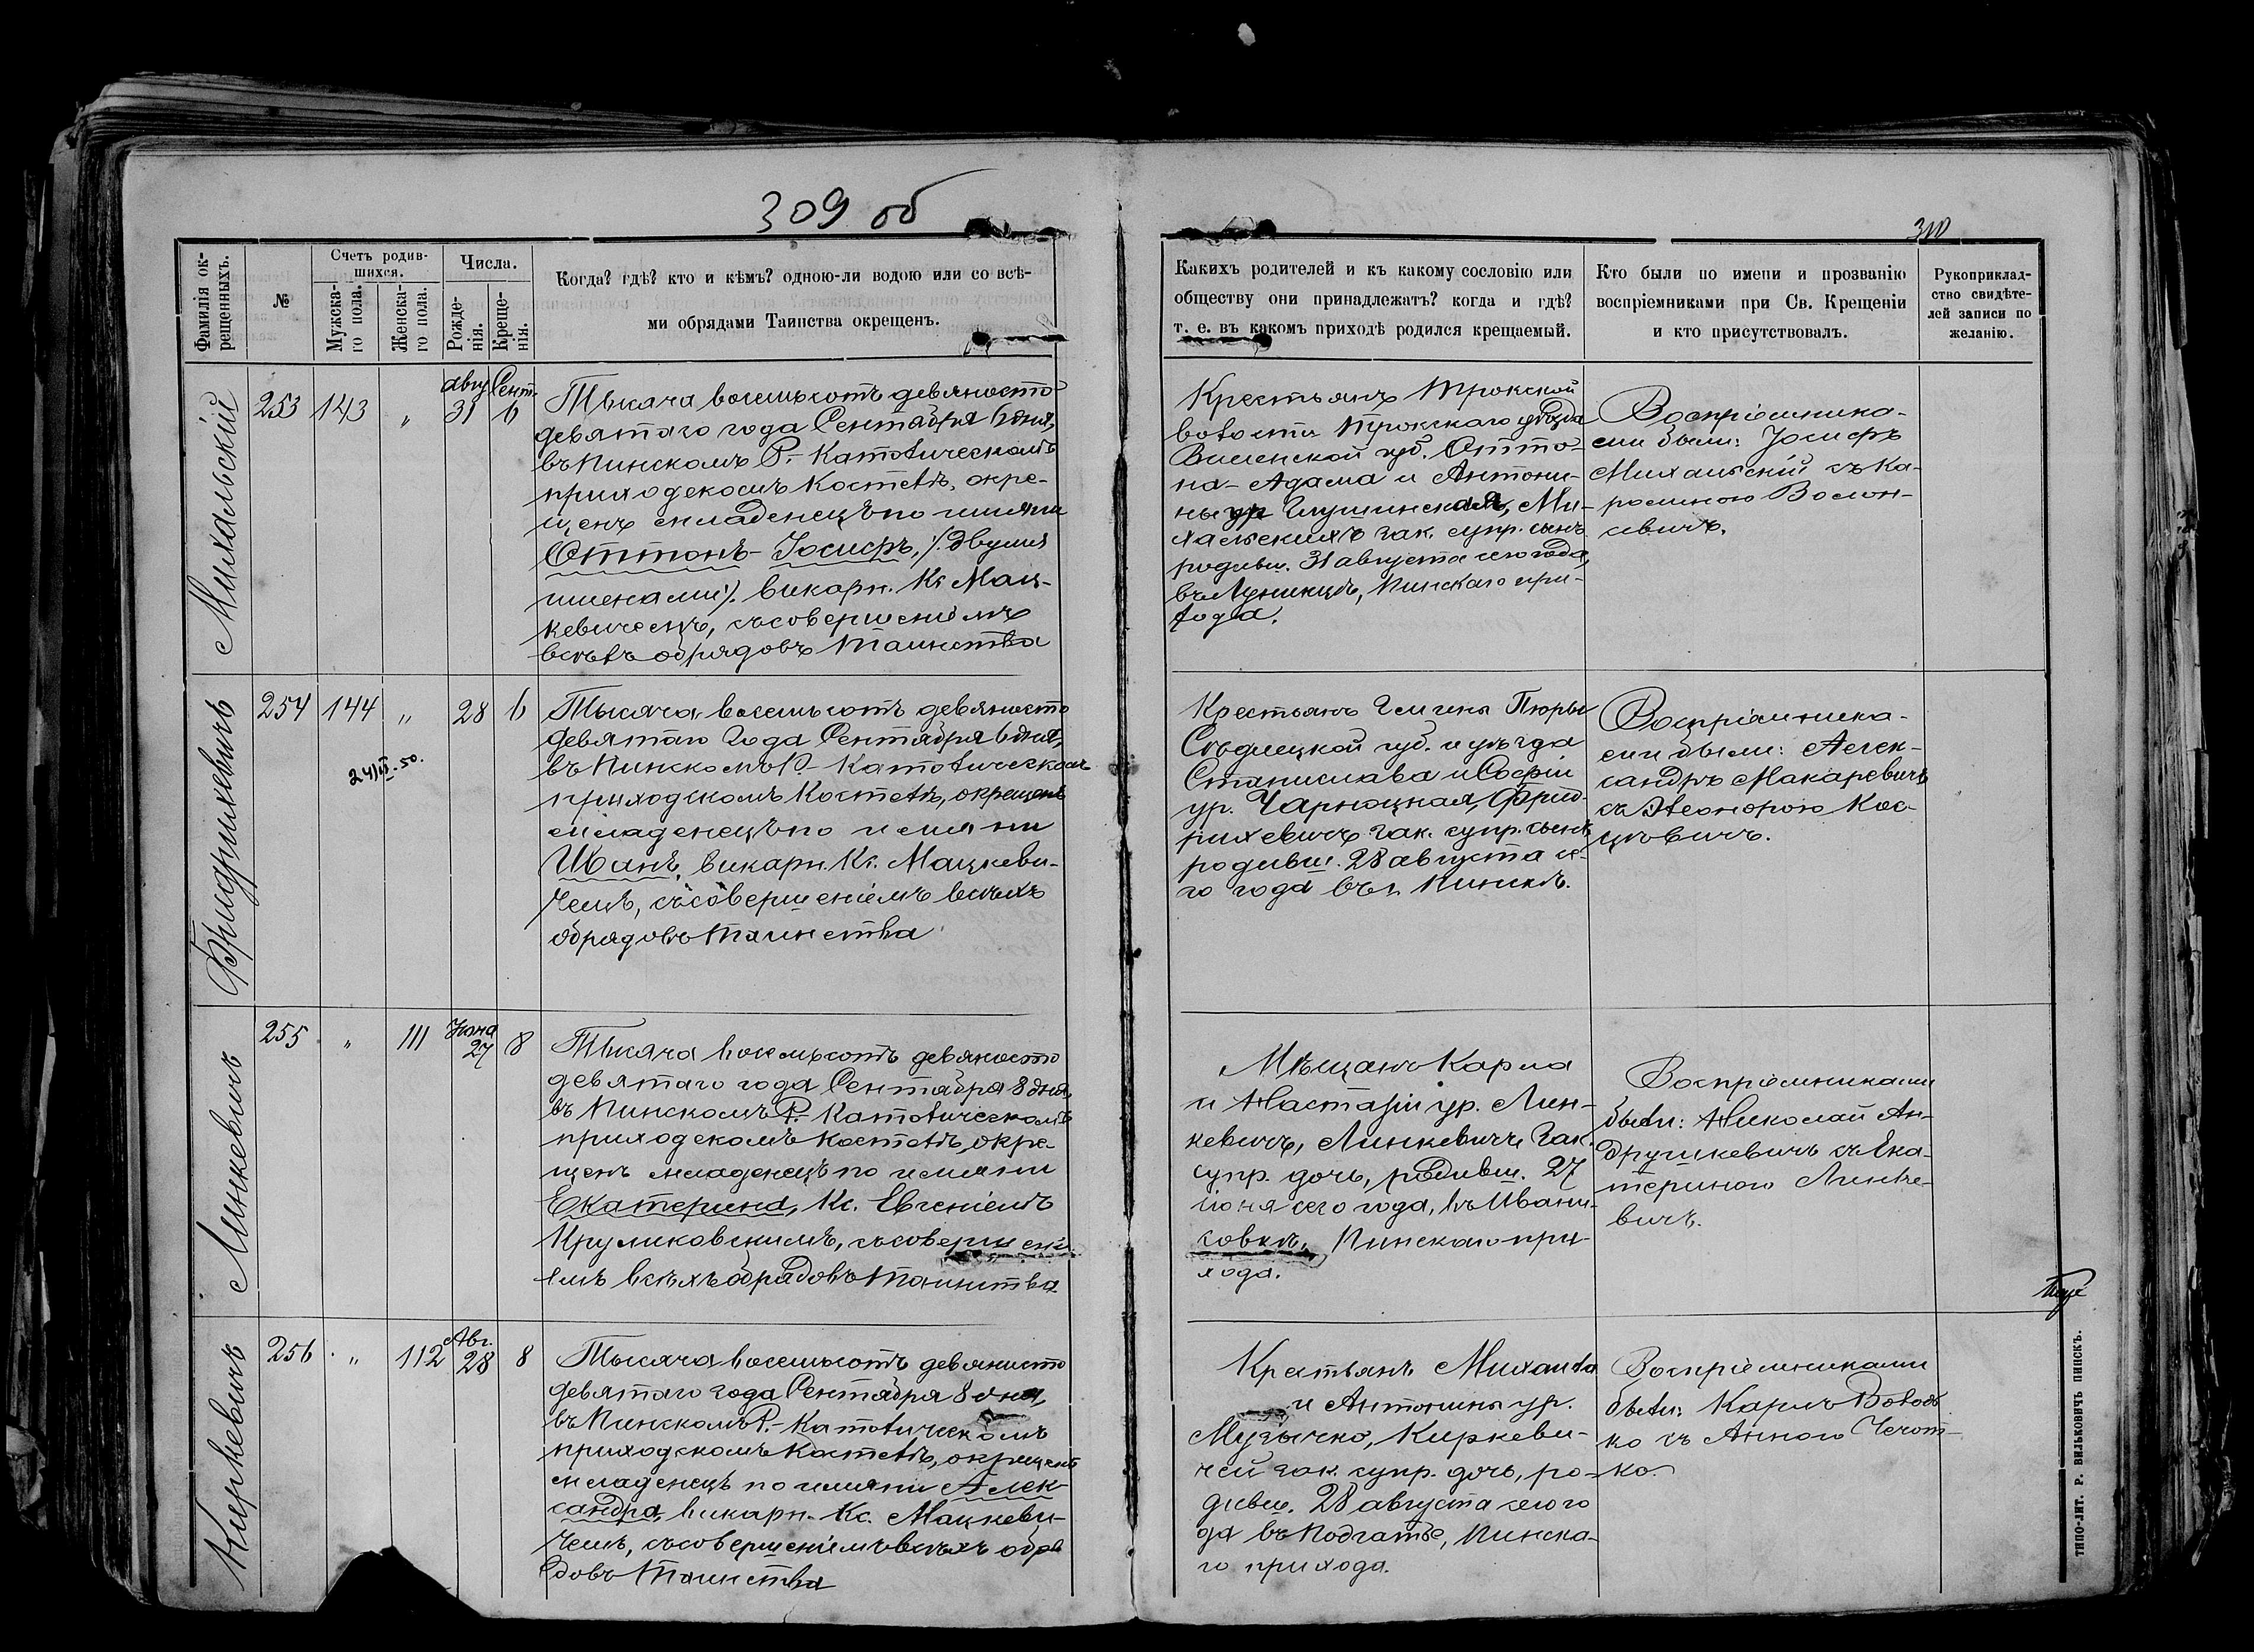 309 об
310
Фамилія ок-
рещенныхъ.
№
Счетъ родив-
шихся.
Мужска-
го пола.
Женска-
го пола.
Числа.
Рожде-
нія.
Креще-
нія.
Когда? гдѣ? кто и кѣмъ? одною-ли водою или со всѣ-
ми обрядами Таинства окрещенъ.
Какихъ родителей и къ какому сословію или
обществу они принадлежатъ? когда и гдѣ?
т. е. въ какомъ приходѣ родился крещаемый.
Кто были по имени и прозванію
воспріемниками при Св. Крещеніи
и кто присутствовалъ.
Рукоприклад-
ство свидѣте-
лей записи по
желанію.
Михальскій
253
143
"
Авгу
31
Сент.
6
Тысяча восемьсотъ девяносто
девятаго года Сентября 6 дня,
въ Пинскомъ Р.-Католическомъ
приходскомъ костелѣ, окре-
щенъ младенецъ по имени
Оттонъ-Іосифъ, /двумя
именами/. викарн. Кс. Мац-
кевичемъ, съ совершеніемъ
всѣхъ обрядовъ Таинства
Крестьянъ Трокской
волости Трокскаго уѣзда
Виленской губ. Отто-
на-Адама и Антони-
ны ур Глушинская, Ми-
хальскихъ зак. супр. сынъ
родивш. 31 августа сего года,
въ Лунинцѣ, Пинскаго при-
хода.
Воспріемника-
ми были: Іосифъ
Михальскій съ Ка-
ролиною Волон-
севичъ.
Фридрихевичъ
254
144
"
28
6
24/II-50.
Тысяча восемьсотъ девяносто
девятаго года Сентября 6 дня,
въ Пинскомъ Р.-Католическомъ
приходскомъ костелѣ, окрещенъ
младенецъ по имени
Иванъ, викарн. Кс. Мацкеви-
чемъ, съ совершеніемъ всѣхъ
обрядовъ Таинства
Крестьянъ Гмины Пюры
Сѣдлецкой губ. и уѣзда
Станислава и Софіи
ур. Чарноцкая, Фрид-
рихевичъ зак. супр. сынъ
родивш. 28 августа се-
го года въ г. Пинскѣ.
Воспріемника-
ми были: Алек-
сандръ Макаревичъ
съ Элеонорою Кос-
цѣвичъ.
Линкевичъ
255
"
111
Іюня
27
8
Тысяча восемьсотъ девяносто
девятаго года Сентября 8 дня,
въ Пинскомъ Р.-Католическомъ
приходскомъ костелѣ, окре-
щенъ младенецъ по имени
Екатерина, Кс. Евгеніемъ
Круликовскимъ, съ совершені-
емъ всѣхъ обрядовъ Таинства
Мѣщанъ Карла
и Настазіи ур. Лин-
кевичъ, Линкевичъ зак.
супр. дочь, родивш. 27
іюня сего года, въ Ивани-
совкѣ, Пинскаго при-
хода.
Воспріемниками
были: Николай Ан-
друшкевичъ съ Ека-
териною Линке-
вичъ.
Киркевичъ
256
"
112
Авг.
28
8
Тысяча восемьсотъ девяносто
девятаго года Сентября 8 дня,
въ Пинскомъ Р.-Католическомъ
приходскомъ костелѣ, окрещенъ
младенецъ по имени Алек-
сандра, викарн. Кс. Мацкеви-
чемъ, съ совершеніемъ всѣхъ обря
довъ Таинства
Крестьянъ Михаила
и Антонины ур.
Музычко, Киркеви-
чей зак. супр. дочь, ро-
дивш. 28 августа сего го
да въ Подгатье, Пинска-
го прихода.
Воспріемниками
были: Карлъ Володь
ко съ Анною Чечот-
ко.
ТИПО-ЛИТ. Р. ВИЛЬКОВИЧЪ ПИНСКЪ.